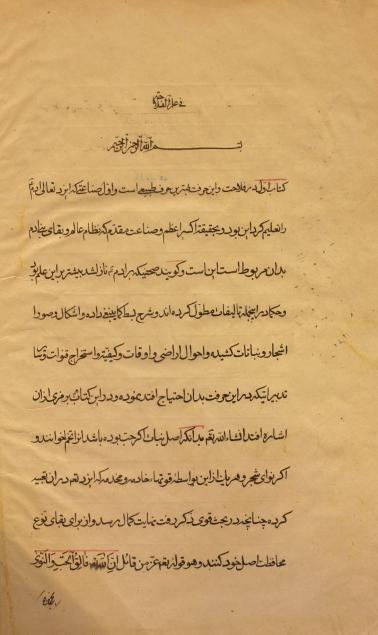 فی علم الفلاحة
بسم الله الرحمن الرحیم
کتاب اول در فلاحت و این حرفت بهترین حرف طبیعی است و اول صناعتی که ایزد تعالی آدم
را تعلیم کرد این بود و بحقیقت اکسیر اعظم و صناعت مقدم که نظام عالم و بقای بنی آدم
بدان مربوط است این است و گویند صحیفه که بر آدم نازل شد بیشتر این علم بود
و حکما در اینجمله تالیفات مطول کرده اند و شرح بسط کما ینبغی داده و اشکال و صور
اشجار و نباتات کشیده و احوال اراضی و اوقات و کیفیت و استخراج قنوات و
تدبیراتیکه در این حرفت بدان احتیاج افتد نموده و در این کتاب برمزی از آن
اشاره افتد انشاء الله تعم بدانکه اصل نبات اگر حب بوده باشد آنرا تخم خوانند و
اگر نوای شجر و هر یک از این بواسطه قوتهاء خادمه و مخدمه که ایزد تعم در آن تعبیه
کرده چنانچه در بحث قوی ذکر رفت بنهایت کمال رسد و از برای بقای نوع
محافظت اصل خود کنند و هو قوله تعم عز من قائل ان الله فالق الحب والنوی